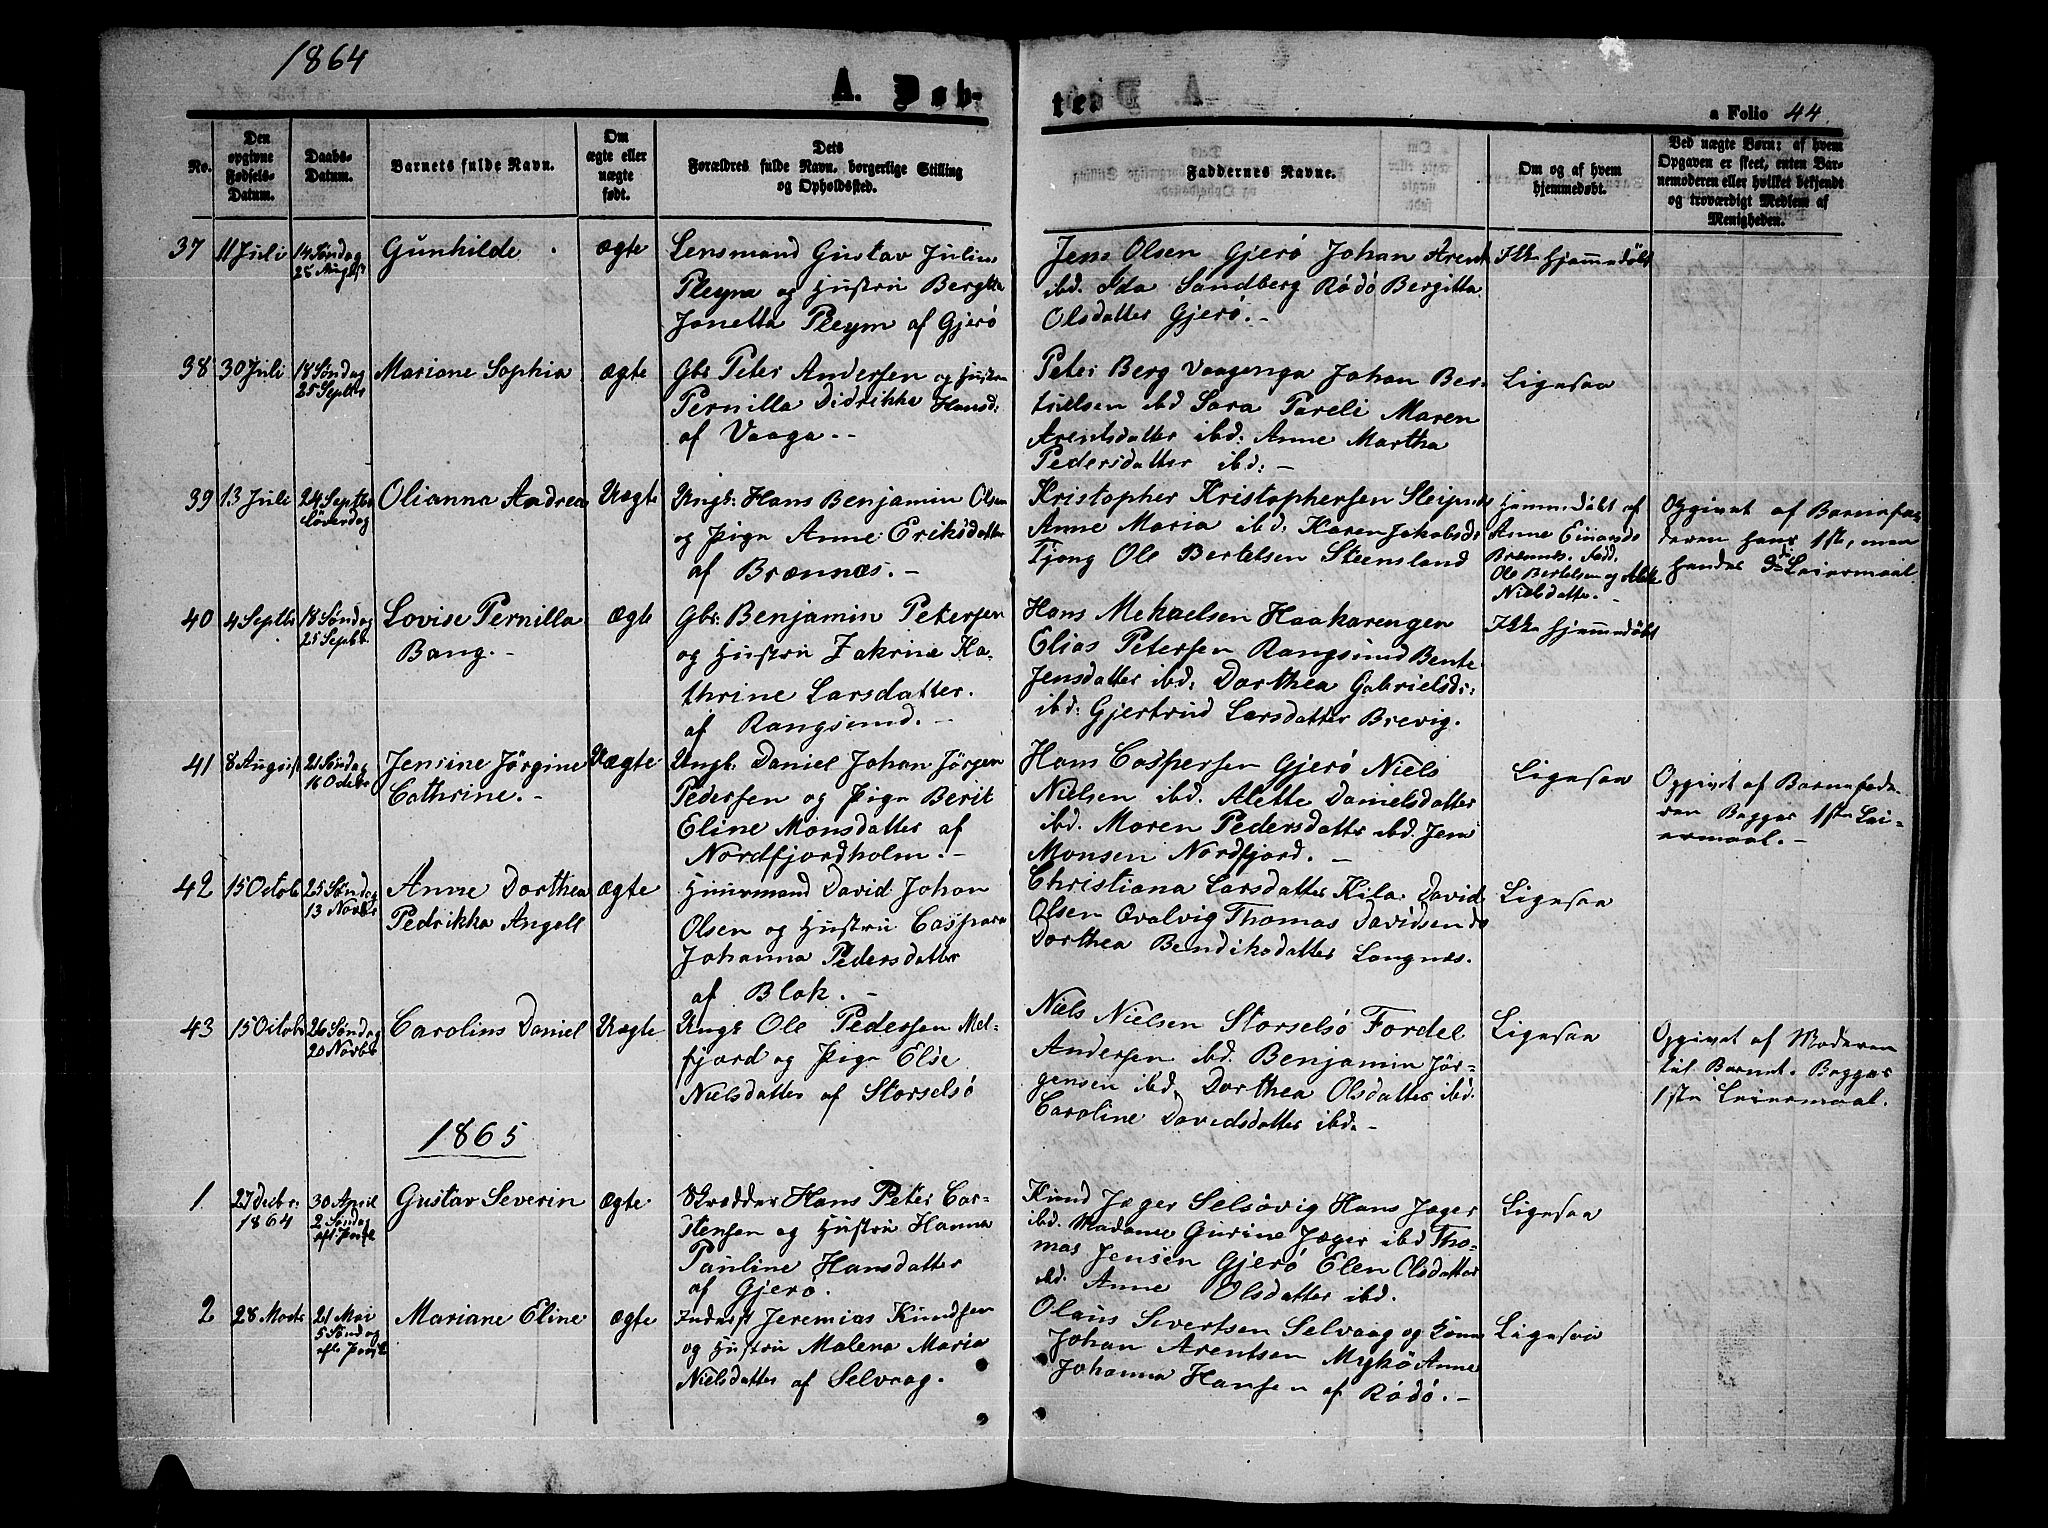 1864
A. Døb-
te.
a Folio 44.
No.
Den opgivne Fødsels-Datum.
Daabs-Datum.
Barnets fulde Navn.
Om ægte eller uægte født.
Dets Forældres fulde Navn, borgerlige Stilling og Opholdssted.
Faddernes Navne.
Om og af hvem hjemmedøbt.
Ved uægte Børn: af hvem Opgaven er skeet, enten Barnemoderen eller hvilket bekjendt og troværdigt Medlem af Menigheden.
37
11 Juli
14 Søndag
28 August
Gunhilde
ægte
Lensmand Gustav Julius
Pleym og Hustru Bergitta
Janetta Pleym af Gjerö
Jens Olsen Gjerö Johan Arent
ibd. Ida Sandberg Rödö Bergitta
Olsdatter Gjerö.-
Ikke hjemmedöbt
38
30 Juli
18 Søndag
25 Septbr
Mariane Sophia
ægte
Gbr Peter Andersen og Hustru
Pernilla Didrikke Hansd:
af Vaaga.-
Peter Berg Vaagenga Johan Ber-
tielsen ibd Sara Pareli Maren
Arentsdatter ibd: Anne Martha
Pedersdatter ibd:-
Ligesaa
39
13 Juli
24 Septbr
Løverdag
Olianna Andrea
Uægte
Ungk: Hans Benjamin Olsen
og Pige Anne Eriksdatter
af Brænnæs.-
Kristopher Kristophersen Sleipnes
Anne Maria ibd: Karen Jakobsd:
Tjong Ole Bertelsen Steensland
Hjemmedöbt af
Anne
Brænnæs. Fadd.
Ole Bertelsen og Alette
Nielsdatter.-
Opgivet af Barnefa-
deren hans 1ste, men
hendes 3die Leiermaal
40
4 Septbr
18 Søndag
25 Septbr
Lovise Pernilla
Bang.-
Ægte
Gbr: Benjamin Petersen
og Hustru Zakrine Ka-
thrine Larsdatter.
af Rangsund.-
Hans Mekaelsen Haakarengen
Elias Petersen Rangsund Bente
Jensdatter ibd: Dorthea Gabrielsdr:
ibd: Gjertrud Larsdatter Brevig.
Ikke hjemmedöbt
41
8 August
21 Søndag
16 Octobr
Jensine Jörgine
Cathrine.-
Uægte
Ungk: Daniel Johan Jörgen
Pedersen og Pige Berit
Eline Monsdatter af
Nordfjordholm.-
Hans Caspersen Gjerö Niels
Nielsen ibd. Alette Danielsdatter
ibd. Maren Pedersdatter ibd. Jens
Monsen Nordfjord.-
Ligesaa
Opgivet af Barnefade-
ren Begges 1ste Lei-
ermaal.-
42
15 Octob
25 Søndag
13 Novbr
Anne Dorthea
Pedrikka Angell
ægte
Huusmand David Johan
Olsen og Hustru Caspara
Johanna Pedersdatter
af Blok.-
Christiana Larsdatter Kila David
Olsen Qvalvig Thomas Davidsen do
Dorthea Bendiksdatter Langnæs.
Ligesaa
43
15 Octobr
26 Søndag
20 Novbr
Carolius Daniel
Uægte
Ungk Ole Pedersen Mel-
fjord og Pige Else
Nielsdatter af Storselsö
Niels Nielsen Storselsö Fordel
Andersen ibd. Benjamin Jör-
gensen ibd. Dorthea Olsdatter ibd.
Caroline Davidsdatter ibd.-
Ligesaa
Opgivet af Moderen
til Barnet. Begges
1ste Leiermaal.
1865
1
27 Decbr.
1864
30 April
2 Søndag
eft. Paaske
Gustav Severin
Ægte
Skrædder Hans Peter Car-
stensen og Hustru Hanna
Pauline Hansdatter
af Gjerö.
Knud Jæger Selsövig Hans Jæger
ibd. Madame Gurine Jæger ibd Tho-
mas Jensen Gjerö Elen Olsdatter
ibd. Anne Olsdatter ibd.
Ligesaa
2
28 Marts
21 Mai
5 Søndag
eft. Paaske
Mariane Eline
Ægte
Inderst Jeremias Knudsen
og Hustru Malena Maria
Nielsdatter af Selvaag.
Olaus Sivertsen Selvaag og Kone
Johan Arentsen Mykö Anne
Johanna Hansen af Rödö.-
Ligesaa